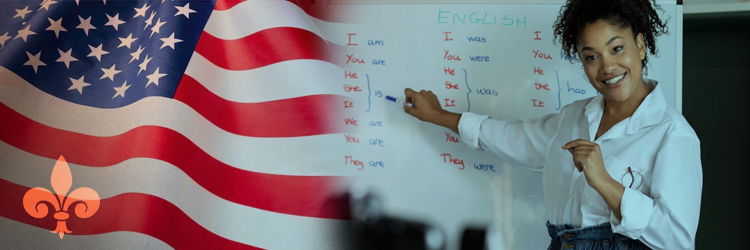 ENGLISH
I am
You are
He
She is
It
We are
You are
They are
I was
You were
He
She was
It
They were
I
He
She has
It